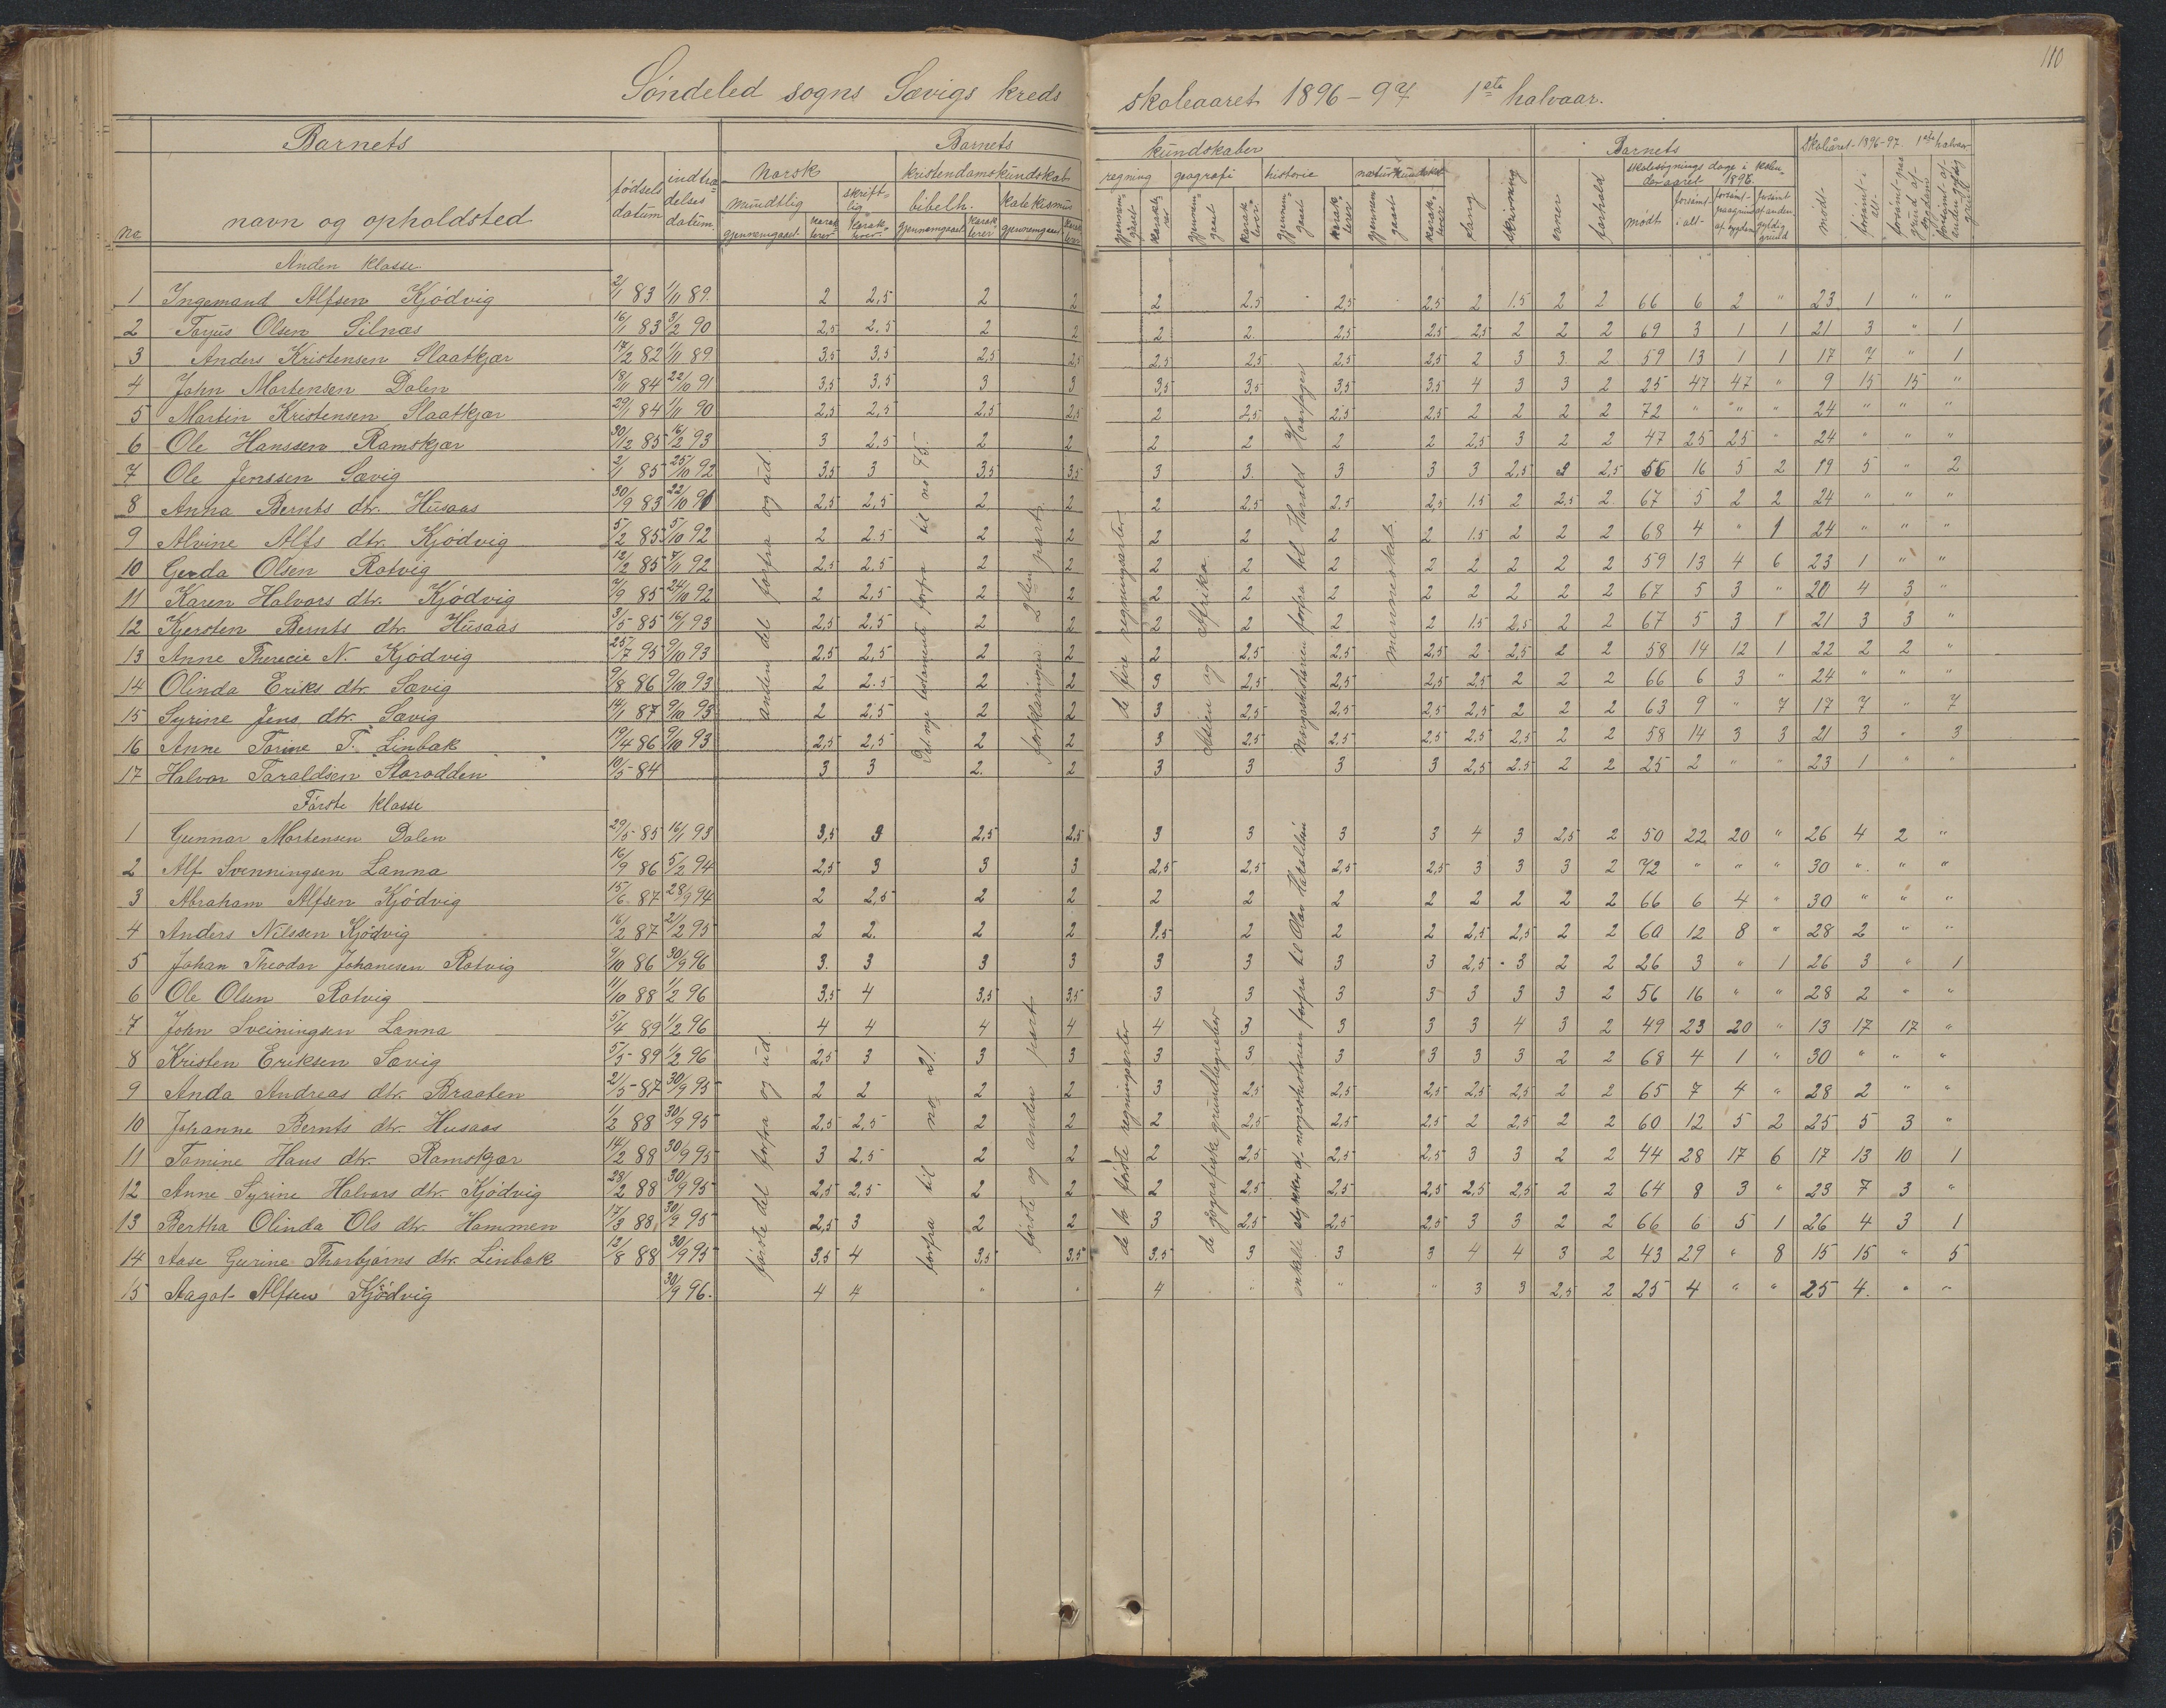 110
Søndeled sogns Sævigs kreds skoleaaret 1896-97 1ste halvaar.
Barnets Barnets kundskaber Barnets Skoleåret 1896-97 1ste halvaar
No navn og opholdsted fødsels datum indtræ-delses datum norsk kristendomskundskab regning geografi historie naturkundskab sang skrivning evner forhold skolesøgnings dage i kalenderaaret 1896
mundtlig skriftlig bibelh. katekismus mødt forsømt i alt forsømt paagrund af sygdom forsømt af anden gyldig grund mødt forsømt i alt
gjennemgaaet karakterer karakterer gjennemgaaet karakterer gjennemgaaet karakterer gjennemgaaet karakterer gjennemgaaet karakterer gjennemgaaet karakterer gjennemgaaet karakterer
Anden klasse
1 Ingemand Alfsen Kjødvig 2/1 83 1/11 89. 2 2,5 2 2 2 2.5 2,5 2,5 2 1.5 2 2 66 6 2 " 23 1 " "
2 Tarjus Olsen Silnæs 16/1 83 3/2 90 2,5 2.5 2 2 2 2. 2,5 2,5 2,5 2 2 2 69 3 1 1 21 3 " 1
3 Anders Kristensen Slaatkjær 17/2 82 1/11 89 3,5 3,5 2,5 2,5 2,5 2,5 2,5 2,5 2 3 3. 2 59 13 1 1 17 7 " 1
4 John Mortensen Dalen 18/11 84 22/10 91 3,5 3,5 3 3 3,5 3,5 3,5 3,5 4 3 3 2 25 47 47 " 9 15 15 "
5 Martin Kristensen Slaatkjær 29/1 84 1/11 90 2,5 2,5 2,5 2,5 2 2,5 2,5 2,5 2 2 2 2 72 " " " 24 " " "
6 Ole Hanssen Ramskjær 30/12 85 16/2 93 3 2,5 2 2 2 2 2 2 2,5 3 2 2 47 25 25 " 24 " " "
7 Ole Jenssen Sævig 2/1 85 25/10 92 3,5 3 3,5 3,5 3 3. 3 3 3 2,5 3 2,5 56 16 5 2 19 5 " 2
8 Anna Bernts dtr. Husaas 30/9 83 22/10 91 2,5 2,5 2 2 2 2,5 2,5 2,5 1.5 2 2,5 2 67 5 2 2 24 " " "
9 Alvine Alfs dtr. Kjødvig 5/2 85 5/10 92 2 2.5 2 2 2 2 2 2 1.5 2 2 2 68 4 " 1 24 " " "
10 Gerda Olsen Rotvig 12/2 85 7/11 92 2,5 2,5 2 2 2 2 2 2 2 2 2 2 59 13 4 6 23 1 " "
11 Karen Halvors dtr. Kjødvig 7/9 85 24/10 92 2 2,5 2 2 2 2 2 2 2 2 2 2 67 5 3 " 20 4 3 "
12 Kjersten Bernts dtr. Husaas 3/5 85 16/1 93 2,5 2,5 2 2 2 2 2 2 1.5 2,5 2 2 67 5 3 1 21 3 3 "
13 Anne Therecie N. Kjødvig 25/7 95 9/10 93 2,5 2,5 2 2 2 2,5 2,5 2,5 2 2,5 2 2 58 14 12 1 22 2 2 "
14 Olinda Eriks dtr. Sævig 9/8 86 9/10 93 2 2.5 2 2 3 2,5 2,5 2,5 2,5 2 2 2 66 6 3 " 24 " " "
15 Syrine Jens dtr. Sævig 14/1 87 9/10 93 2 2,5 2 2 3 2,5 2,5 2,5 2,5 2 2 2 63 9 " 7 17 7 " 7
16 Anne Tarine T. Linbak 19/4 86 9/10 93 2,5 2,5 2 2 3 2,5 2,5 2,5 2,5 2,5 2 2 58 14 3 3 21 3 " 3
17 Halvor Taraldsen Starodden 10/5 84 3 3 2. 2 3 3 3 3 2,5 2.5 2 2 25 2 " " 23 1 " "
anden del forfra og ud. Det nye testamente forfra til no 45. forklaringen 2den part. de fire regningsarter Asien og Afrika. Norgeshistorien forfra til Harald Haarfager menneskets.
Første klasse
1 Gunnar Mortensen Dalen 29/5 85 16/1 93 3,5 3 2,5 2,5 3 3 3 3 4 3 2,5 2 50 22 20 " 26 4 2 "
2 Alf Svenningsen Lanna 16/9 86 5/2 94 2,5 3 3 3 2,5 2,5 2,5 2,5 3 3 3 2 72 " " " 30 " " "
3 Abraham Alfsen Kjødvig 15/6 87 28/9 94 2 2,5 2 2 2 2 2 2 2 2 2 2 66 6 4 " 30 " " "
4 Anders Nilssen Kjødvig 16/2 87 21/2 95 2 2. 2 2 1.5 2 2 2 2,5 2,5 2 2 60 12 8 " 28 2 " "
5 Johan Theodor Johanesen Rotvig 9/10 86 30/9 96 3. 3 3 3 3 3 3 3 2,5 3 2 2 26 3 " 1 26 3 " 1
6 Ole Olsen Rotvig 11/10 88 1/2 96 3,5 4 3,5 3,5 3 3 3 3 3 3 3 2 56 16 " " 28 2 " "
7 John Sveiningsen Lanna 5/4 89 1/2 96 4 4 4 4 4 3 3 3 3 4 3 2 49 23 20 " 13 17 17 "
8 Kristen Eriksen Sævig 5/5 89 1/2 96 2,5 3 3 3 3 3 3 3 3 3 2 2 68 4 1 " 30 " " "
9 Anda Andreas dtr. Braaten 21/5 87 30/9 95 2 2 2 2 3 2,5 2,5 2,5 2,5 2,5 2 2 65 7 4 " 28 2 " "
10 Johanne Bernts dtr. Husaas 1/2 88 30/9 95 2,5 2,5 2 2 2 2,5 2,5 2,5 2 2,5 2 2 60 12 5 2 25 5 3 "
11 Tomine Hans dtr. Ramskjær 14/2 88 30/9 95 3 2,5 2 2 2 2,5 2,5 2,5 3 3 2 2 44 28 17 6 17 13 10 1
12 Anne Syrine Halvors dtr. Kjødvig 23/2 88 30/9 95 2,5 2,5 2 2 2 2,5 2,5 2,5 2,5 2,5 2 2 64 8 3 " 23 7 3 "
13 Bertha Olinda Ols dtr. Hammen 17/3 88 30/9 95 2,5 3 2 2 3 2,5 2,5 2,5 3 3 2 2 66 6 5 1 26 4 3 1
14 Aase Gurine Thorbjørns dtr. Linbak 12/8 88 30/9 95 3,5 4 3,5 3.5 3.5 3 3 3 4 4 3 2 43 29 " 8 15 15 " 5
15 Aagot Alfsen Kjødvig 30/9 96. 4 4 " " 4 " " " 3 3 2,5 2 25 4 " " 25 4. " "
første del forfra og ud. forfra til no 21. første og anden part de 4 første regningsarter de geografiske grundbegreber enkelte stykker af norgeshistorien forfra til Olav